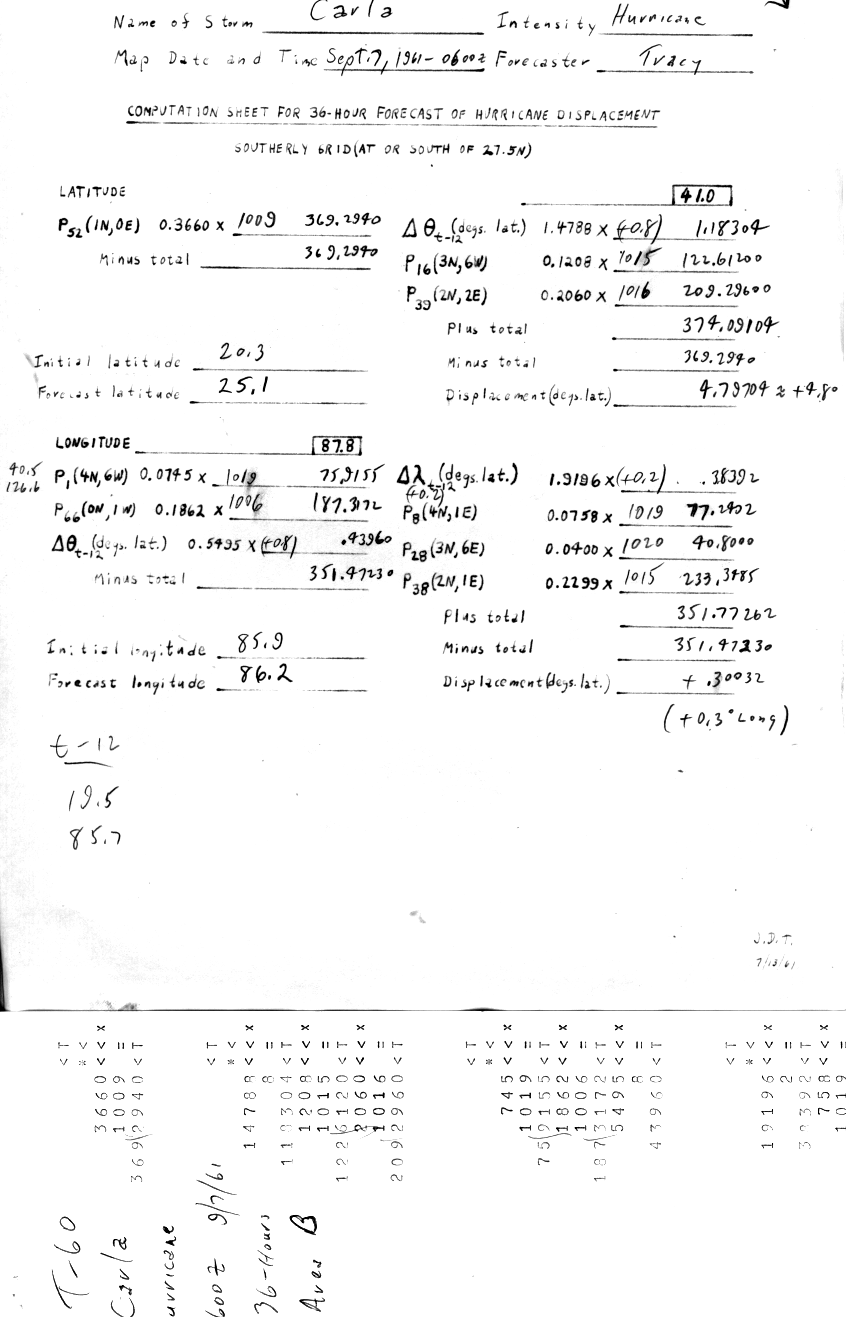 Name of Storm Carla Intensity Hurricane
Map Date and Time Sept. 7, 1961 - 0600Z Forecaster Tracy
COMPUTATION SHEET FOR 36-HOUR FORECAST OF HURRICANE DISPLACEMENT
SOUTHERLY GRID (AT OR SOUTH OF 27.5N)
LATITUDE 41.0
P52 (1N, 0E) 0.3660 x 1009 369.2940
Minus total 369.2940
Δθt-12 (degs. lat.) 1.4788 x (+0.8) 1.18304
P16 (3N, 6W) 0.1208 x 1015 122.61200
P39 (2N, 2E) 0.2060 x 1016 209.29600
Plus total 374.09104
Initial latitude 20.3
Minus total 369.2940
Forecast latitude 25.1
Displacement (degs. lat.) 4.79704 ≈ +4.80
LONGITUDE 87.8
40.5
126.6
P1 (4N, 6W) 0.0745 x 1019 75.9155
P66 (0N, 1W) 0.1862 x 1006 187.3172
Δθt-12 (degs. lat.) 0.5495 x (+0.8) .43960
Minus total 351.47230
Δλt-12 (degs. lat.) 1.9196 x (+0.2) .38392
(+0.2)
P8 (4N, 1E) 0.0758 x 1019 77.2402
P28 (3N, 6E) 0.0400 x 1020 40.8000
P38 (2N, 1E) 0.2299 x 1015 233.3485
Plus total 351.77262
Initial longitude 85.9
Minus total 351.47230
Forecast longitude 86.2
Displacement (degs. lat.) + .30032
(+0.3° Long)
t-12
19.5
85.7
J.D.T.
7/13/61
T-60
Carla
urricane
600Z 9/7/61
36-Hours
Area B
<T
* <
3660 < < x
1009 =
3692940 < T
<T
* <
14788 < < x
8 =
118304 < T
1208 < < x
1015 =
1226120 < T
2060 < < x
1016 =
2092960 < T
<T
* <
745 < < x
1019 =
759155 < T
1862 < < x
1006 =
1873172 < T
5495 < < x
8 =
43960 < T
<T
* <
19196 < < x
2 =
38392 < T
758 < < x
1019 =